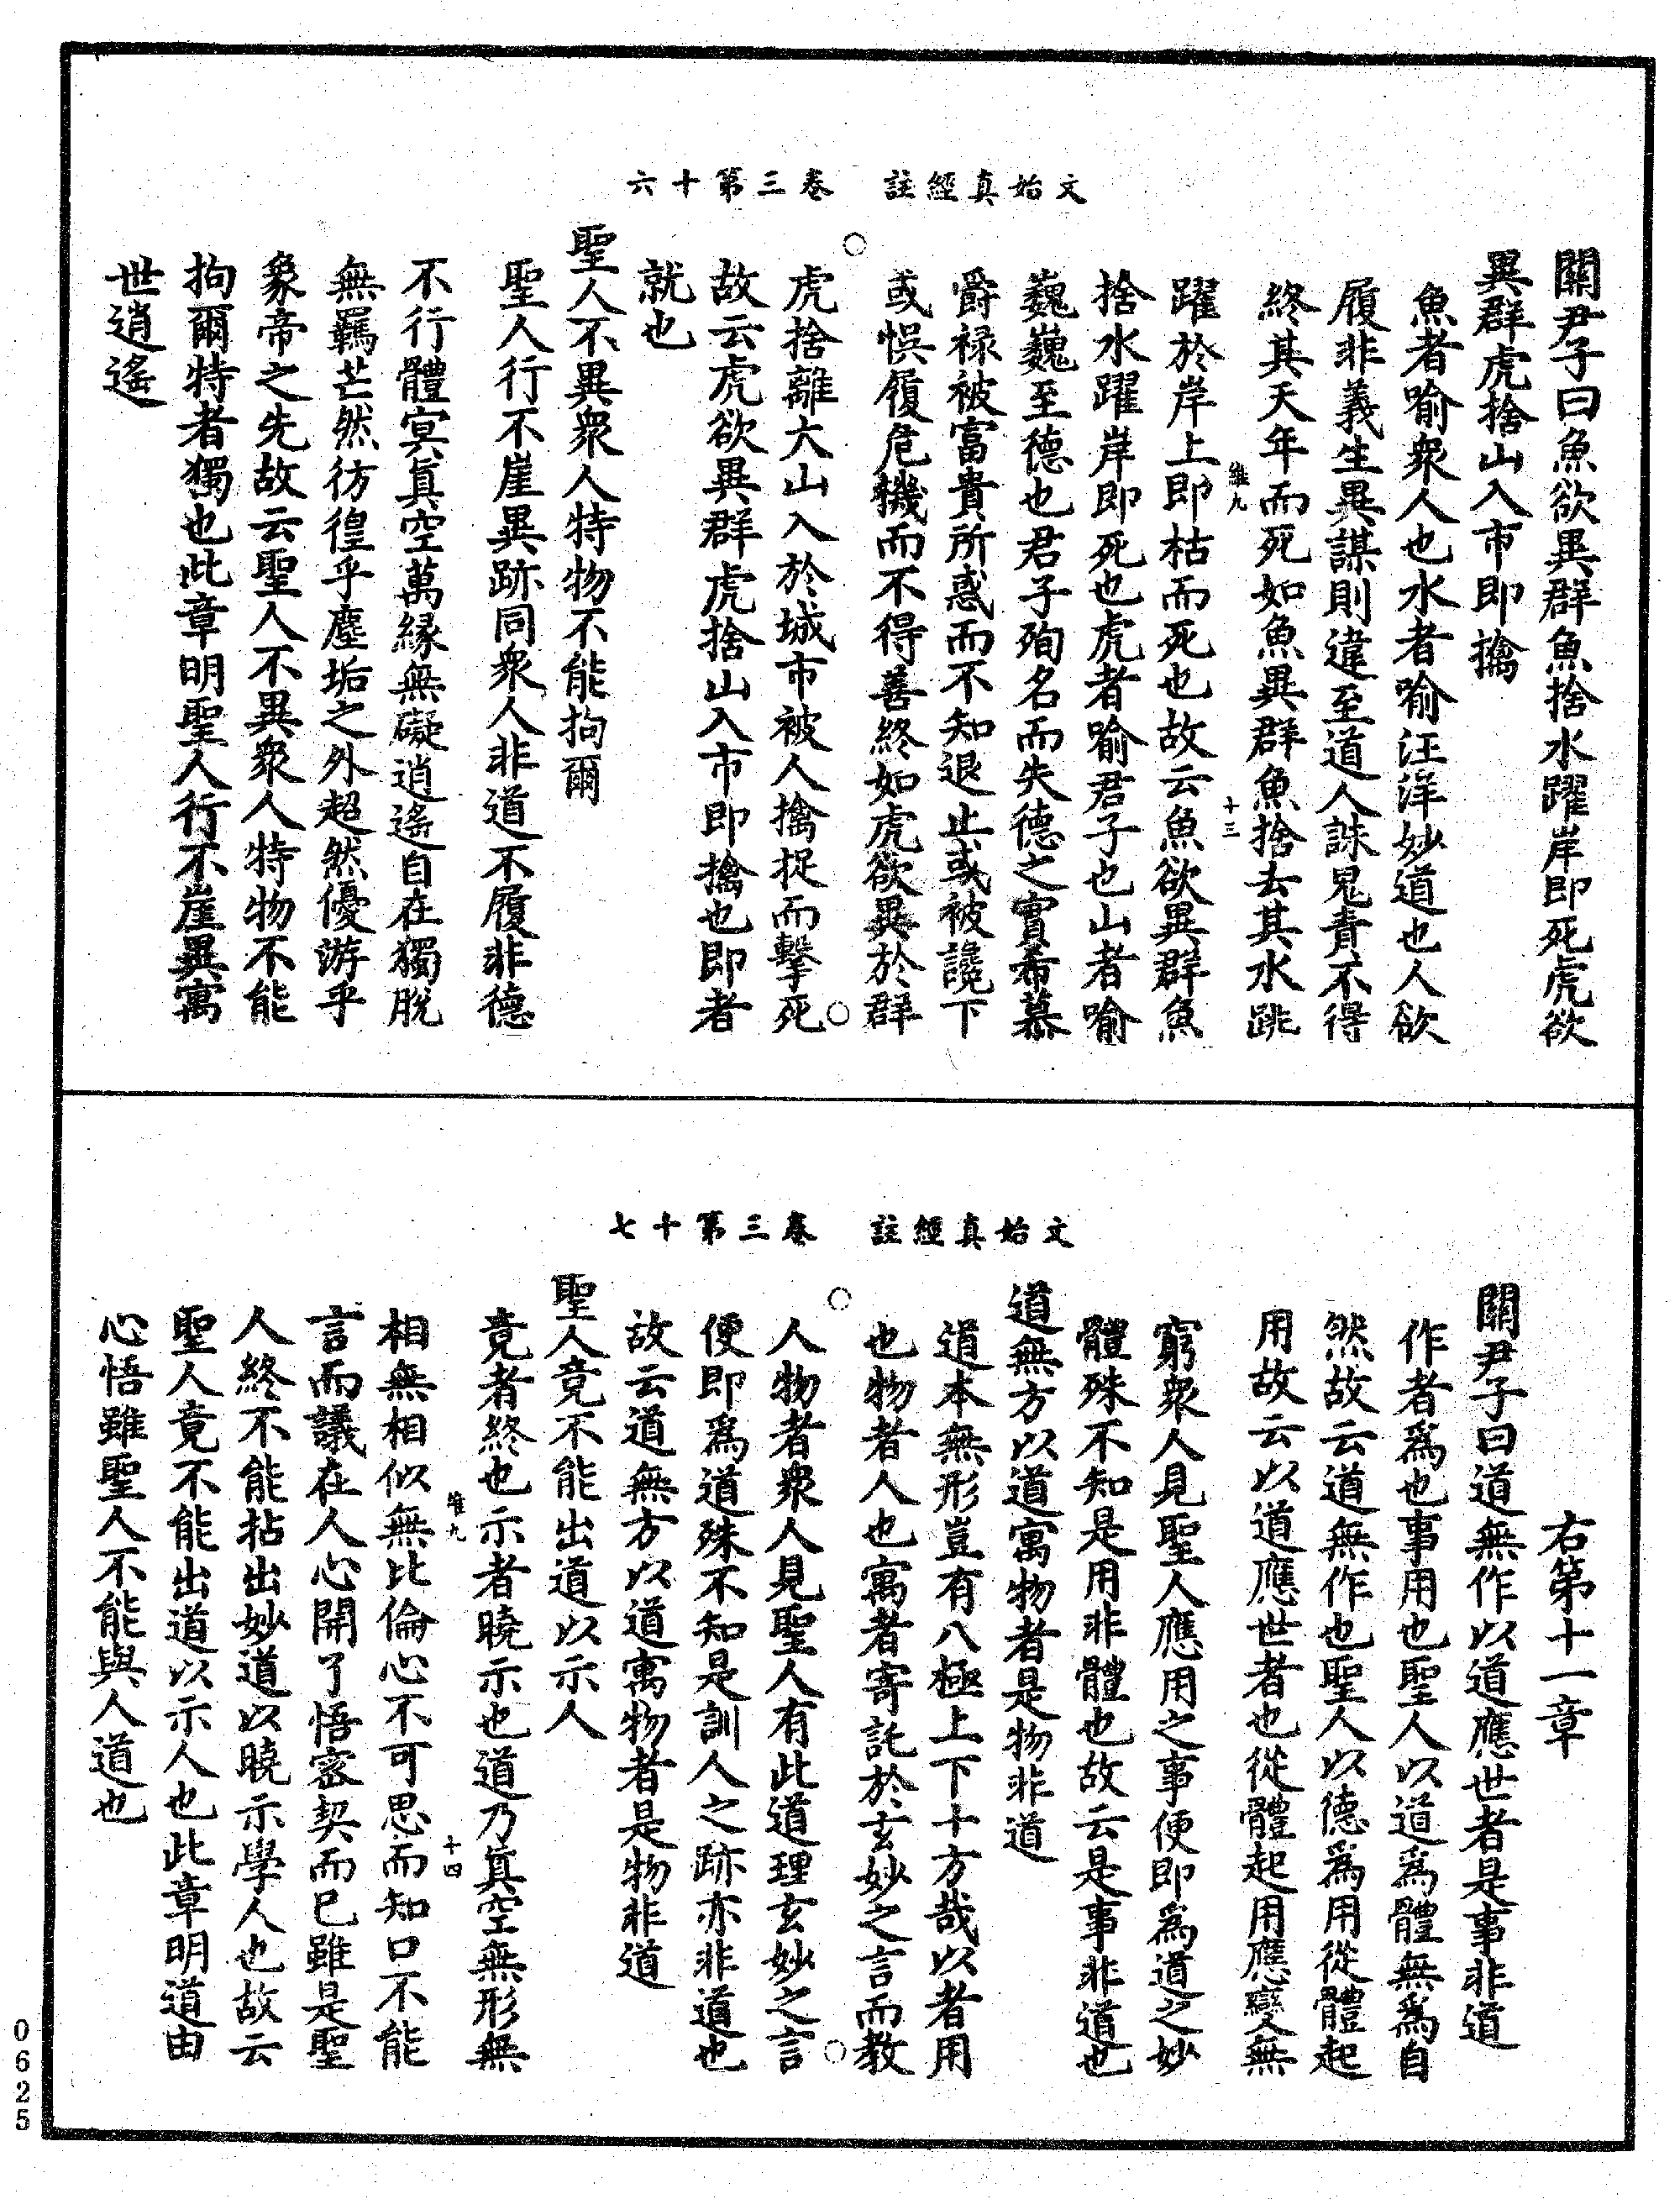 文始真經註　卷三第十六
關尹子曰魚欲異群魚捨水躍岸即死虎欲
異群虎捨山入市即擒
魚者喻衆人也水者喻汪洋妙道也人欲
履非義生異謀則違至道人誅鬼責不得
終其天年而死如魚異群魚捨去其水跳
維九
十三
躍於岸上即枯而死也故云魚欲異群魚
捨水躍岸即死也虎者喻君子也山者喻
巍巍至德也君子殉名而失德之實希慕
爵祿被富貴所惑而不知退止或被讒下
或悞履危機而不得善終如虎欲異於群
虎捨離大山入於城市被人擒捉而擊死
故云虎欲異群虎捨山入市即擒也即者
就也
聖人不異衆人特物不能拘爾
聖人行不崖異跡同衆人非道不履非德
不行體冥眞空萬緣無礙逍遙自在獨脫
無羈芒然彷徨乎塵垢之外超然優游乎
象帝之先故云聖人不異衆人特物不能
拘爾特者獨也此章明聖人行不崖異寓
世逍遙
文始真經註　卷三第十七
右第十一章
關尹子曰道無作以道應世者是事非道
作者爲也事用也聖人以道爲體無爲自
然故云道無作也聖人以德爲用從體起
用故云以道應世者也從體起用應變無
窮衆人見聖人應用之事便即爲道之妙
體殊不知是用非體也故云是事非道也
道無方以道寓物者是物非道
道本無形豈有八極上下十方哉以者用
也物者人也寓者寄託於玄妙之言而教
人物者衆人見聖人有此道理玄妙之言
便即爲道殊不知是訓人之跡亦非道也
故云道無方以道寓物者是物非道
聖人竟不能出道以示人
竟者終也示者曉示也道乃眞空無形無
維九
十四
相無相似無比倫心不可思而知口不能
言而議在人心開了悟密契而已雖是聖
人終不能拈出妙道以曉示學人也故云
聖人竟不能出道以示人也此章明道由
心悟雖聖人不能與人道也
0625